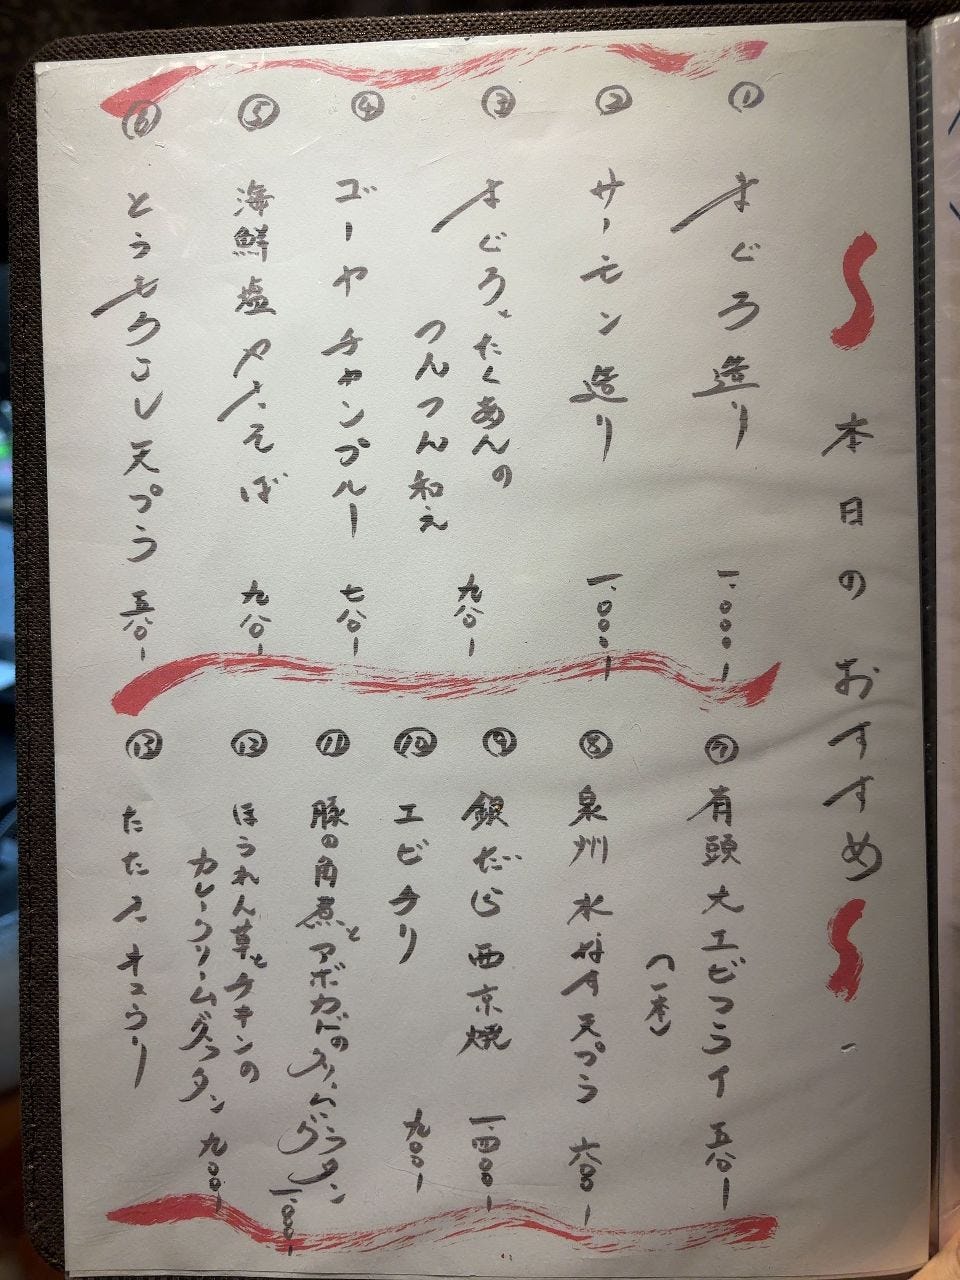 本日のおすすめ
① まぐろ造り 一、〇〇〇ー
② サーモン造り 一、〇〇〇ー
③ まぐろとたくあんの
つんつん和え 九八〇ー
④ ゴーヤチャンプルー 七八〇ー
⑤ 海鮮塩やきそば 九八〇ー
⑥ とうもろこし天プラ 五八〇ー
⑦ 有頭大エビフライ 五八〇ー
(一本)
⑧ 泉州水なす天プラ 六八〇ー
⑨ 銀だら西京焼 一、四〇〇ー
⑩ エビチリ 九〇〇ー
⑪ 豚の角煮とアボカドのクリームグラタン 一、〇〇〇ー
⑫ ほうれん草とチキンの
カレークリームグラタン 九〇〇ー
⑬ たたきキュウリ